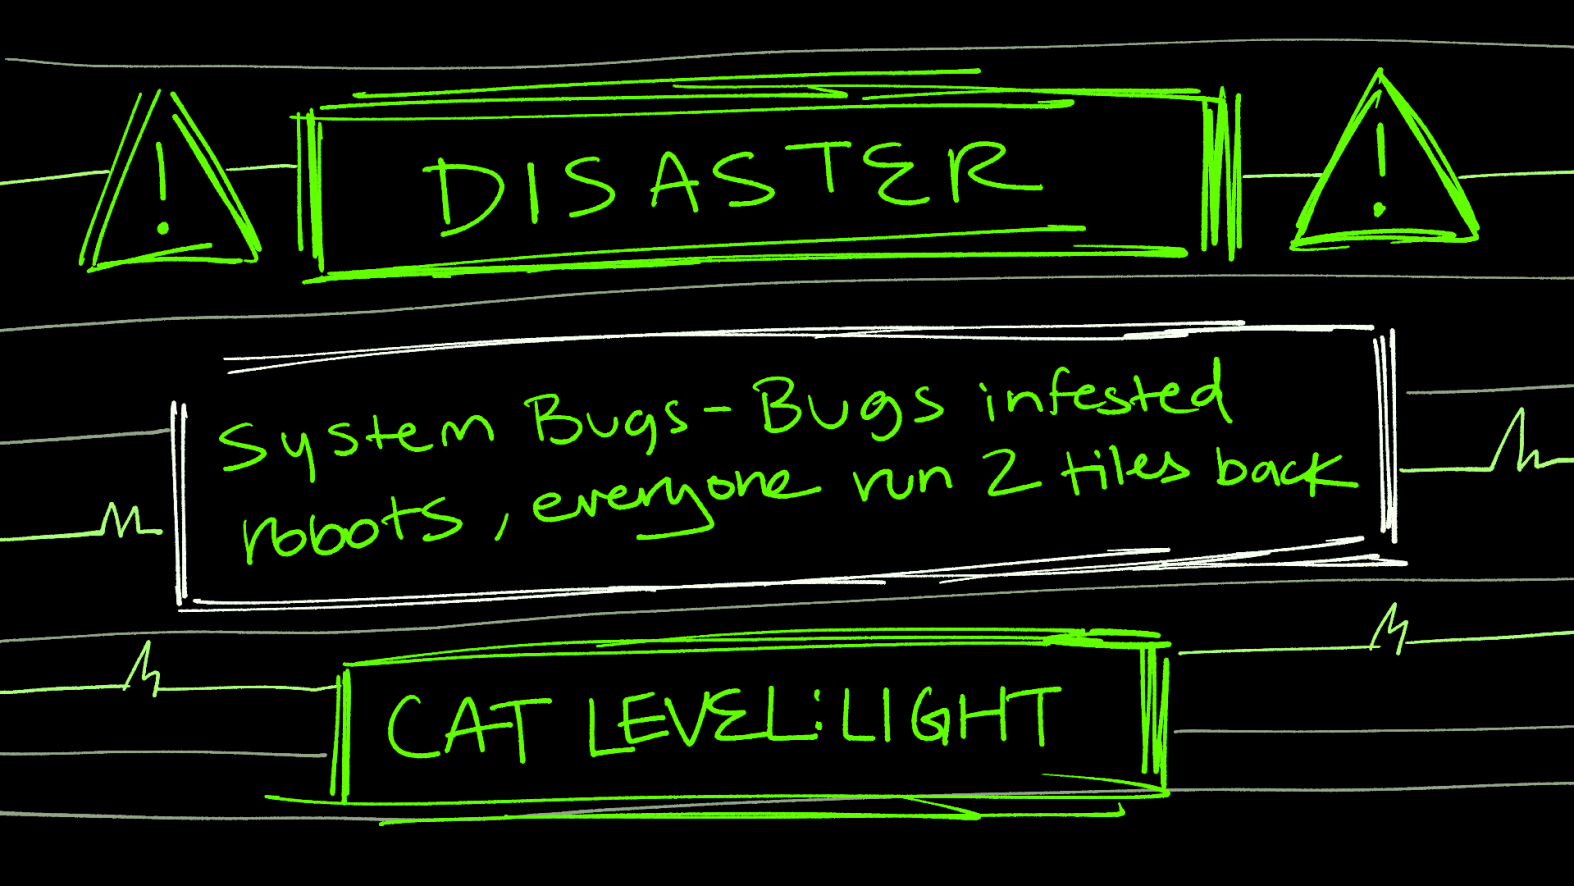 DISASTER
System Bugs - Bugs infested
robots, everyone run 2 tiles back
CAT LEVEL: LIGHT